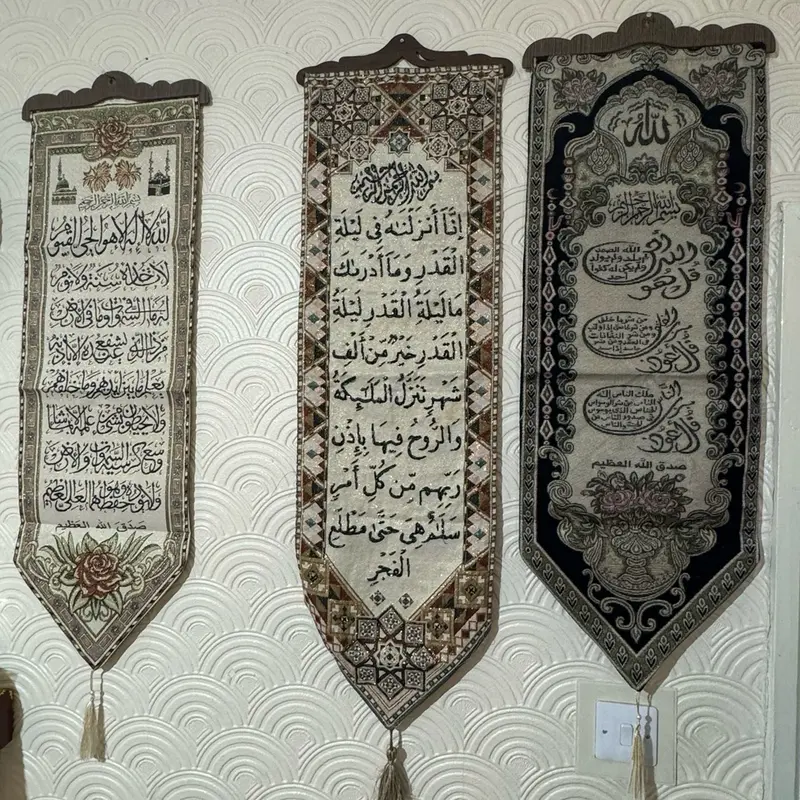 بسم الله الرحمن الرحيم
الله لا إله إلا هو الحي القيوم
لا تأخذه سنة ولا نوم
له ما في السموات وما في الأرض
من ذا الذي يشفع عنده إلا بإذنه
يعلم ما بين أيديهم وما خلفهم
ولا يحيطون بشيء من علمه إلا بما شاء
وسع كرسيه السموات والأرض
ولا يؤده حفظهما وهو العلي العظيم
صدق الله العظيم
بسم الله الرحمن الرحيم
إِنَّا أَنزَلْنَٰهُ فِي لَيْلَةِ
الْقَدْرِ وَمَا أَدْرَىٰكَ
مَا لَيْلَةُ الْقَدْرِ لَيْلَةُ
الْقَدْرِ خَيْرٌ مِّنْ أَلْفِ
شَهْرٍ تَنَزَّلُ الْمَلَٰئِكَةُ
وَالرُّوحُ فِيهَا بِإِذْنِ
رَبِّهِم مِّن كُلِّ أَمْرٍ
سَلَٰمٌ هِيَ حَتَّىٰ مَطْلَعِ
الْفَجْرِ
الله
بسم الله الرحمن الرحيم
قل هو الله أحد
الله الصمد
لم يلد ولم يولد
ولم يكن له كفوا
أحد
قل أعوذ برب الفلق
من شر ما خلق
قل أعوذ برب الناس
ملك الناس إله
الناس من شر الوسواس
الخناس الذي يوسوس
في صدور الناس من
الجنة والناس
صدق الله العظيم